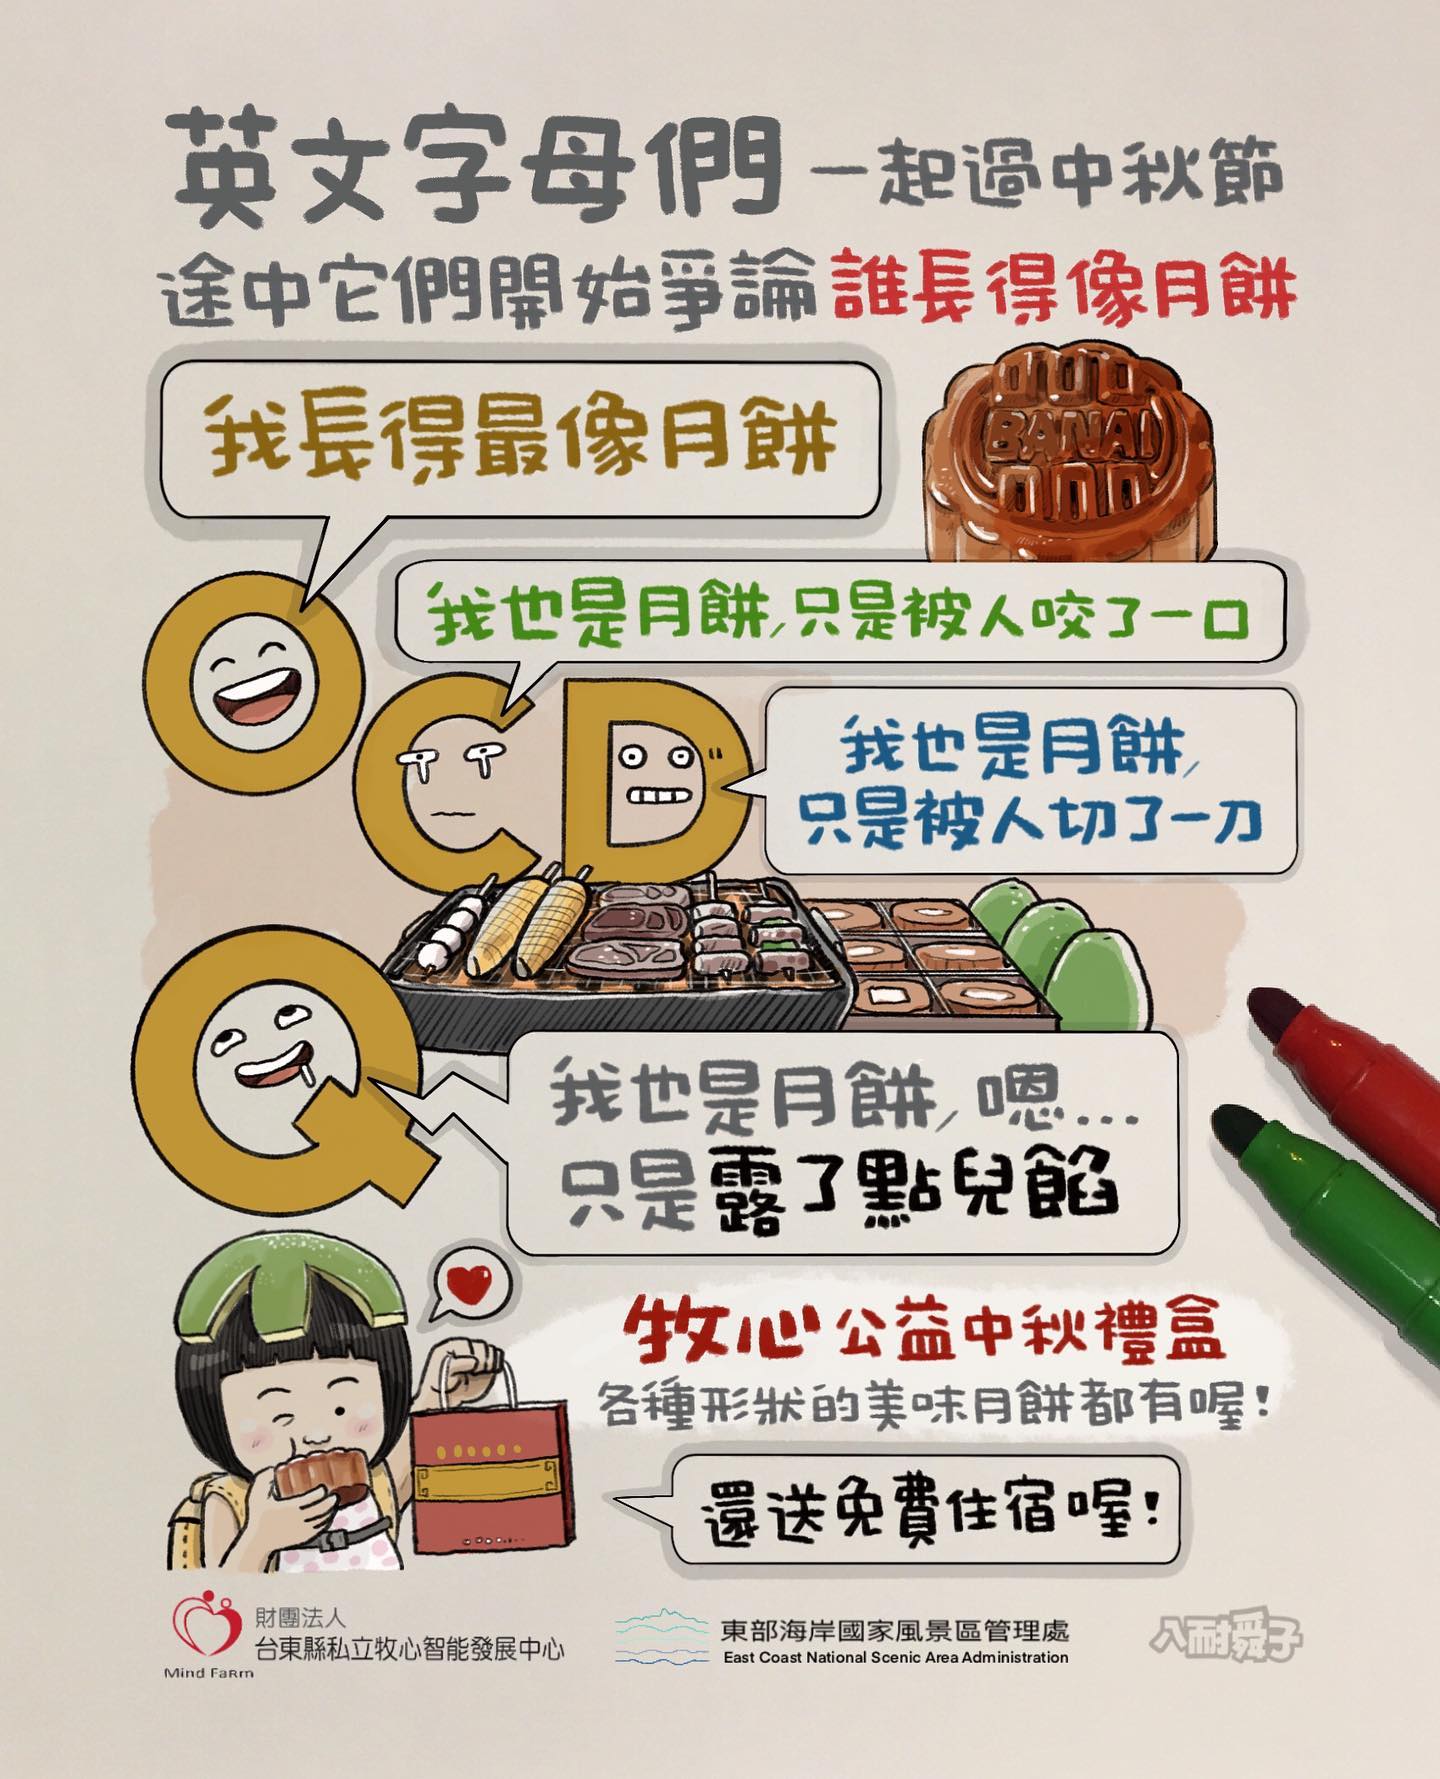 英文字母們 一起過中秋節
途中它們開始爭論 誰長得像月餅
我長得最像月餅
BANAI
我也是月餅,只是被人咬了一口
我也是月餅,
只是被人切了一刀
我也是月餅,嗯...
只是露了點兒餡
牧心公益中秋禮盒
各種形狀的美味月餅都有喔!
還送免費住宿喔!
財團法人
台東縣私立牧心智能發展中心
Mind Farm
東部海岸國家風景區管理處
East Coast National Scenic Area Administration
八耐舜子